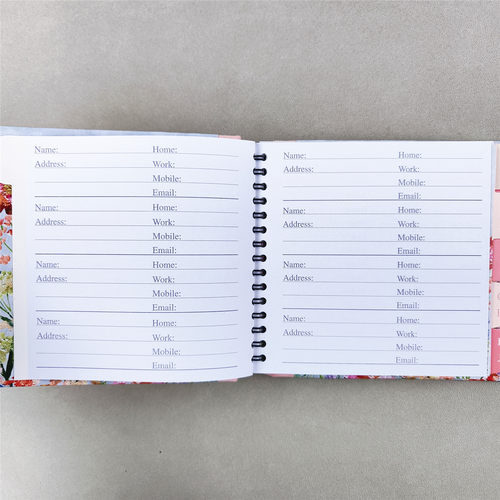 Name: Home:
Address: Work:
Mobile:
Email:
Name: Home:
Address: Work:
Mobile:
Email:
Name: Home:
Address: Work:
Mobile:
Email:
Name: Home:
Address: Work:
Mobile:
Email:
Name: Home:
Address: Work:
Mobile:
Email:
Name: Home:
Address: Work:
Mobile:
Email:
Name: Home:
Address: Work:
Mobile:
Email:
Name: Home:
Address: Work:
Mobile:
Email: